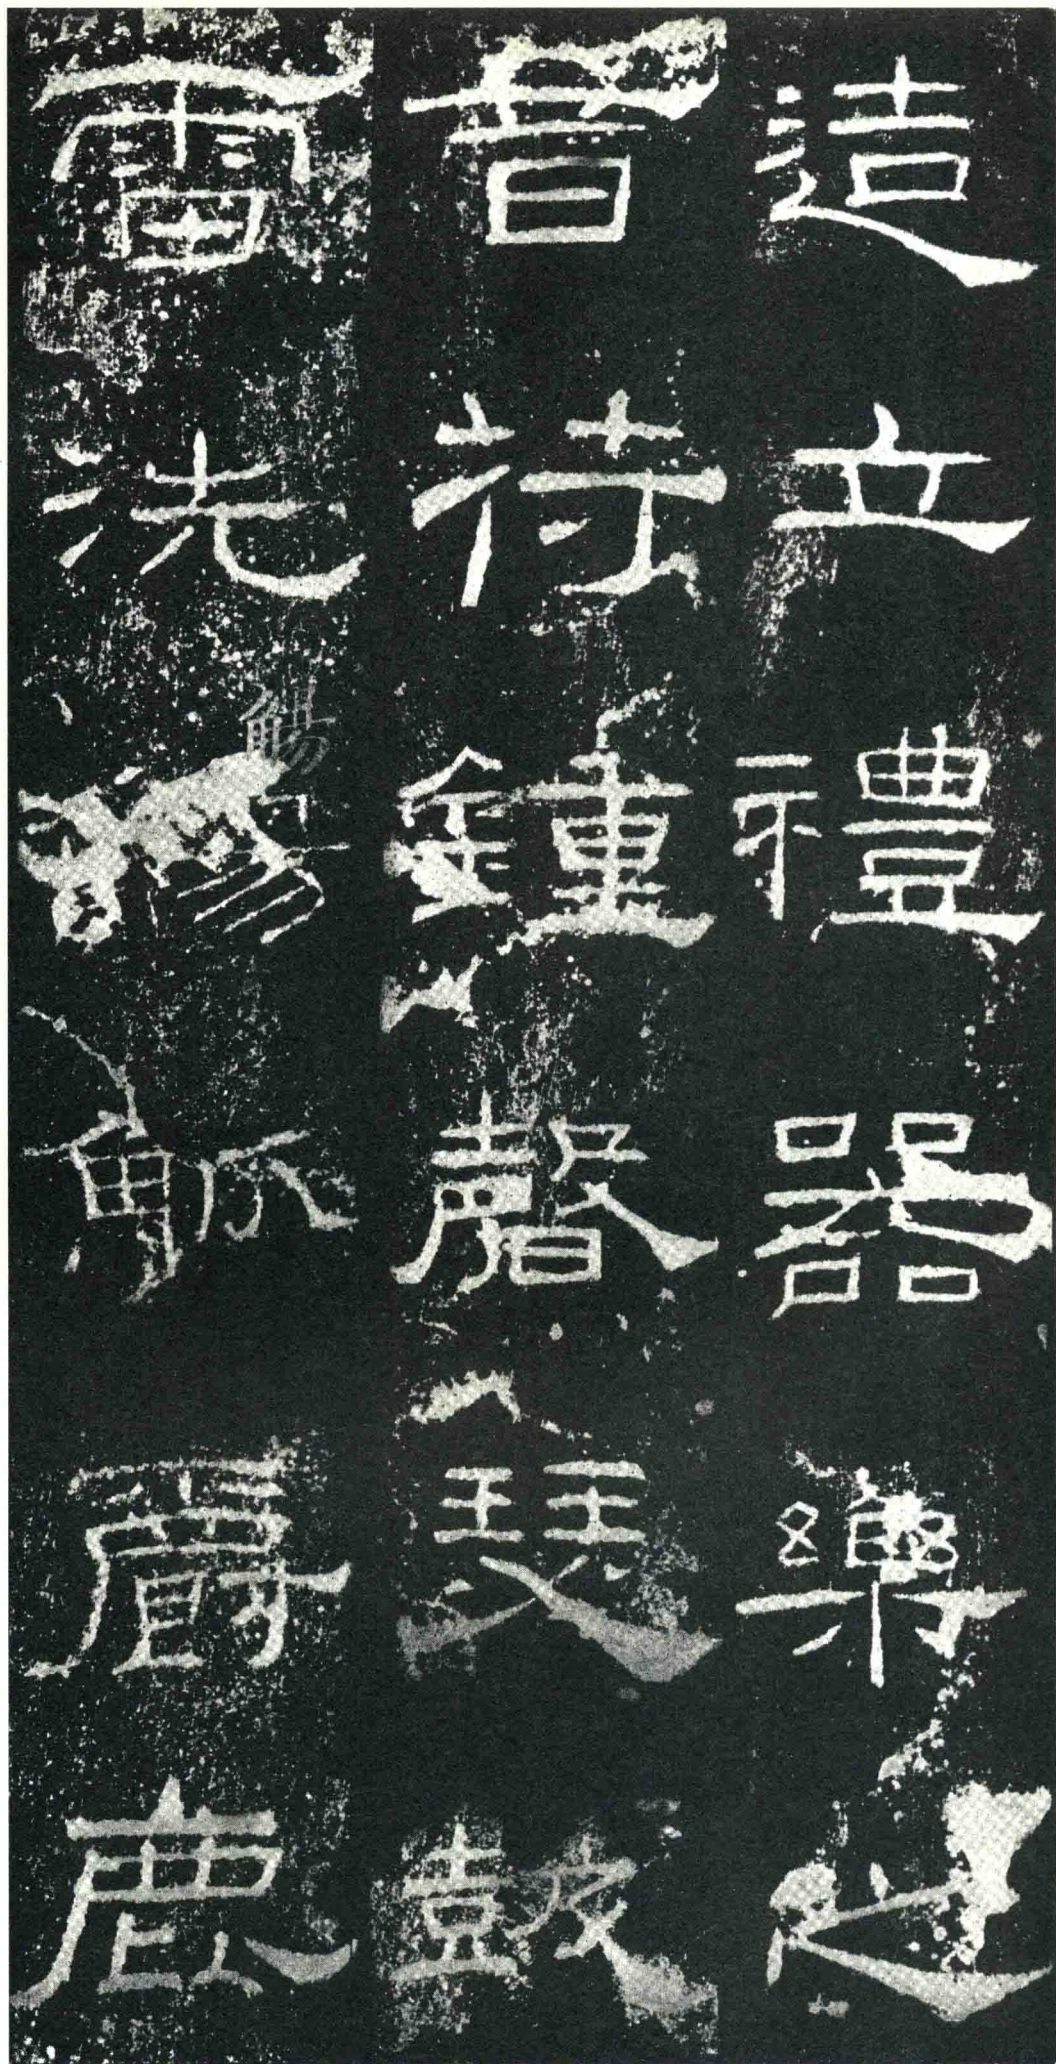 造立禮器樂之
音苻鍾磬瑟鼓
雷洗觴觚爵鹿
觴